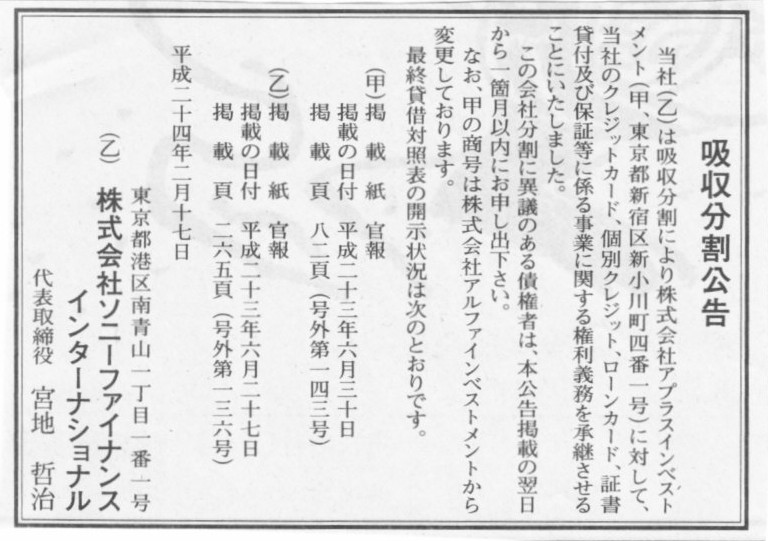 吸収分割公告
当社(乙)は吸収分割により株式会社アプラスインベスト
メント(甲、東京都新宿区新小川町四番一号)に対して、
当社のクレジットカード、個別クレジット、ローンカード、証書
貸付及び保証等に係る事業に関する権利義務を承継させる
ことにいたしました。
この会社分割に異議のある債権者は、本公告掲載の翌日
から一箇月以内にお申し出下さい。
なお、甲の商号は株式会社アルファインベストメントから
変更しております。
最終貸借対照表の開示状況は次のとおりです。
(甲)掲載紙 官報
掲載の日付 平成二十三年六月三十日
掲載頁 八二頁(号外第一四三号)
(乙)掲載紙 官報
掲載の日付 平成二十三年六月二十七日
掲載頁 二六五頁(号外第一三六号)
平成二十四年二月十七日
東京都港区南青山一丁目一番一号
(乙) 株式会社ソニーファイナンス
インターナショナル
代表取締役 宮地 哲治